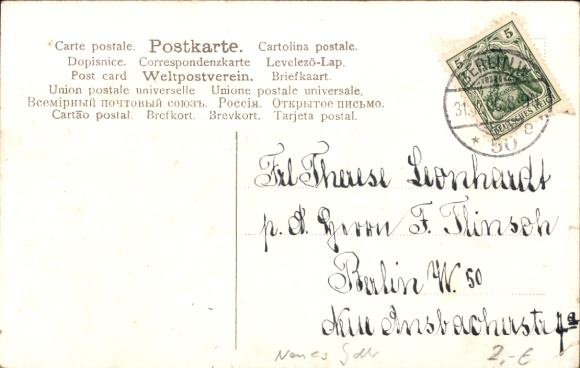 Carte postale. Postkarte. Cartolina postale.
Dopisnice. Correspondenzkarte Levelező-Lap.
Post card. Weltpostverein. Briefkaart.
Union postale universelle Unione postale universale,
Всемірный почтовый союзъ. Россія. Открытое письмо.
Cartão postal. Brefkort. Brevkort. Tarjeta postal.
5 5
DEUTSCHES REICH
BERLIN W
31.
* 50 e
Frl Therese Leonhardt
p. A. Herrn F. Flinsch
Berlin W. 50
Neue Ansbacherstr 7a
2,- €